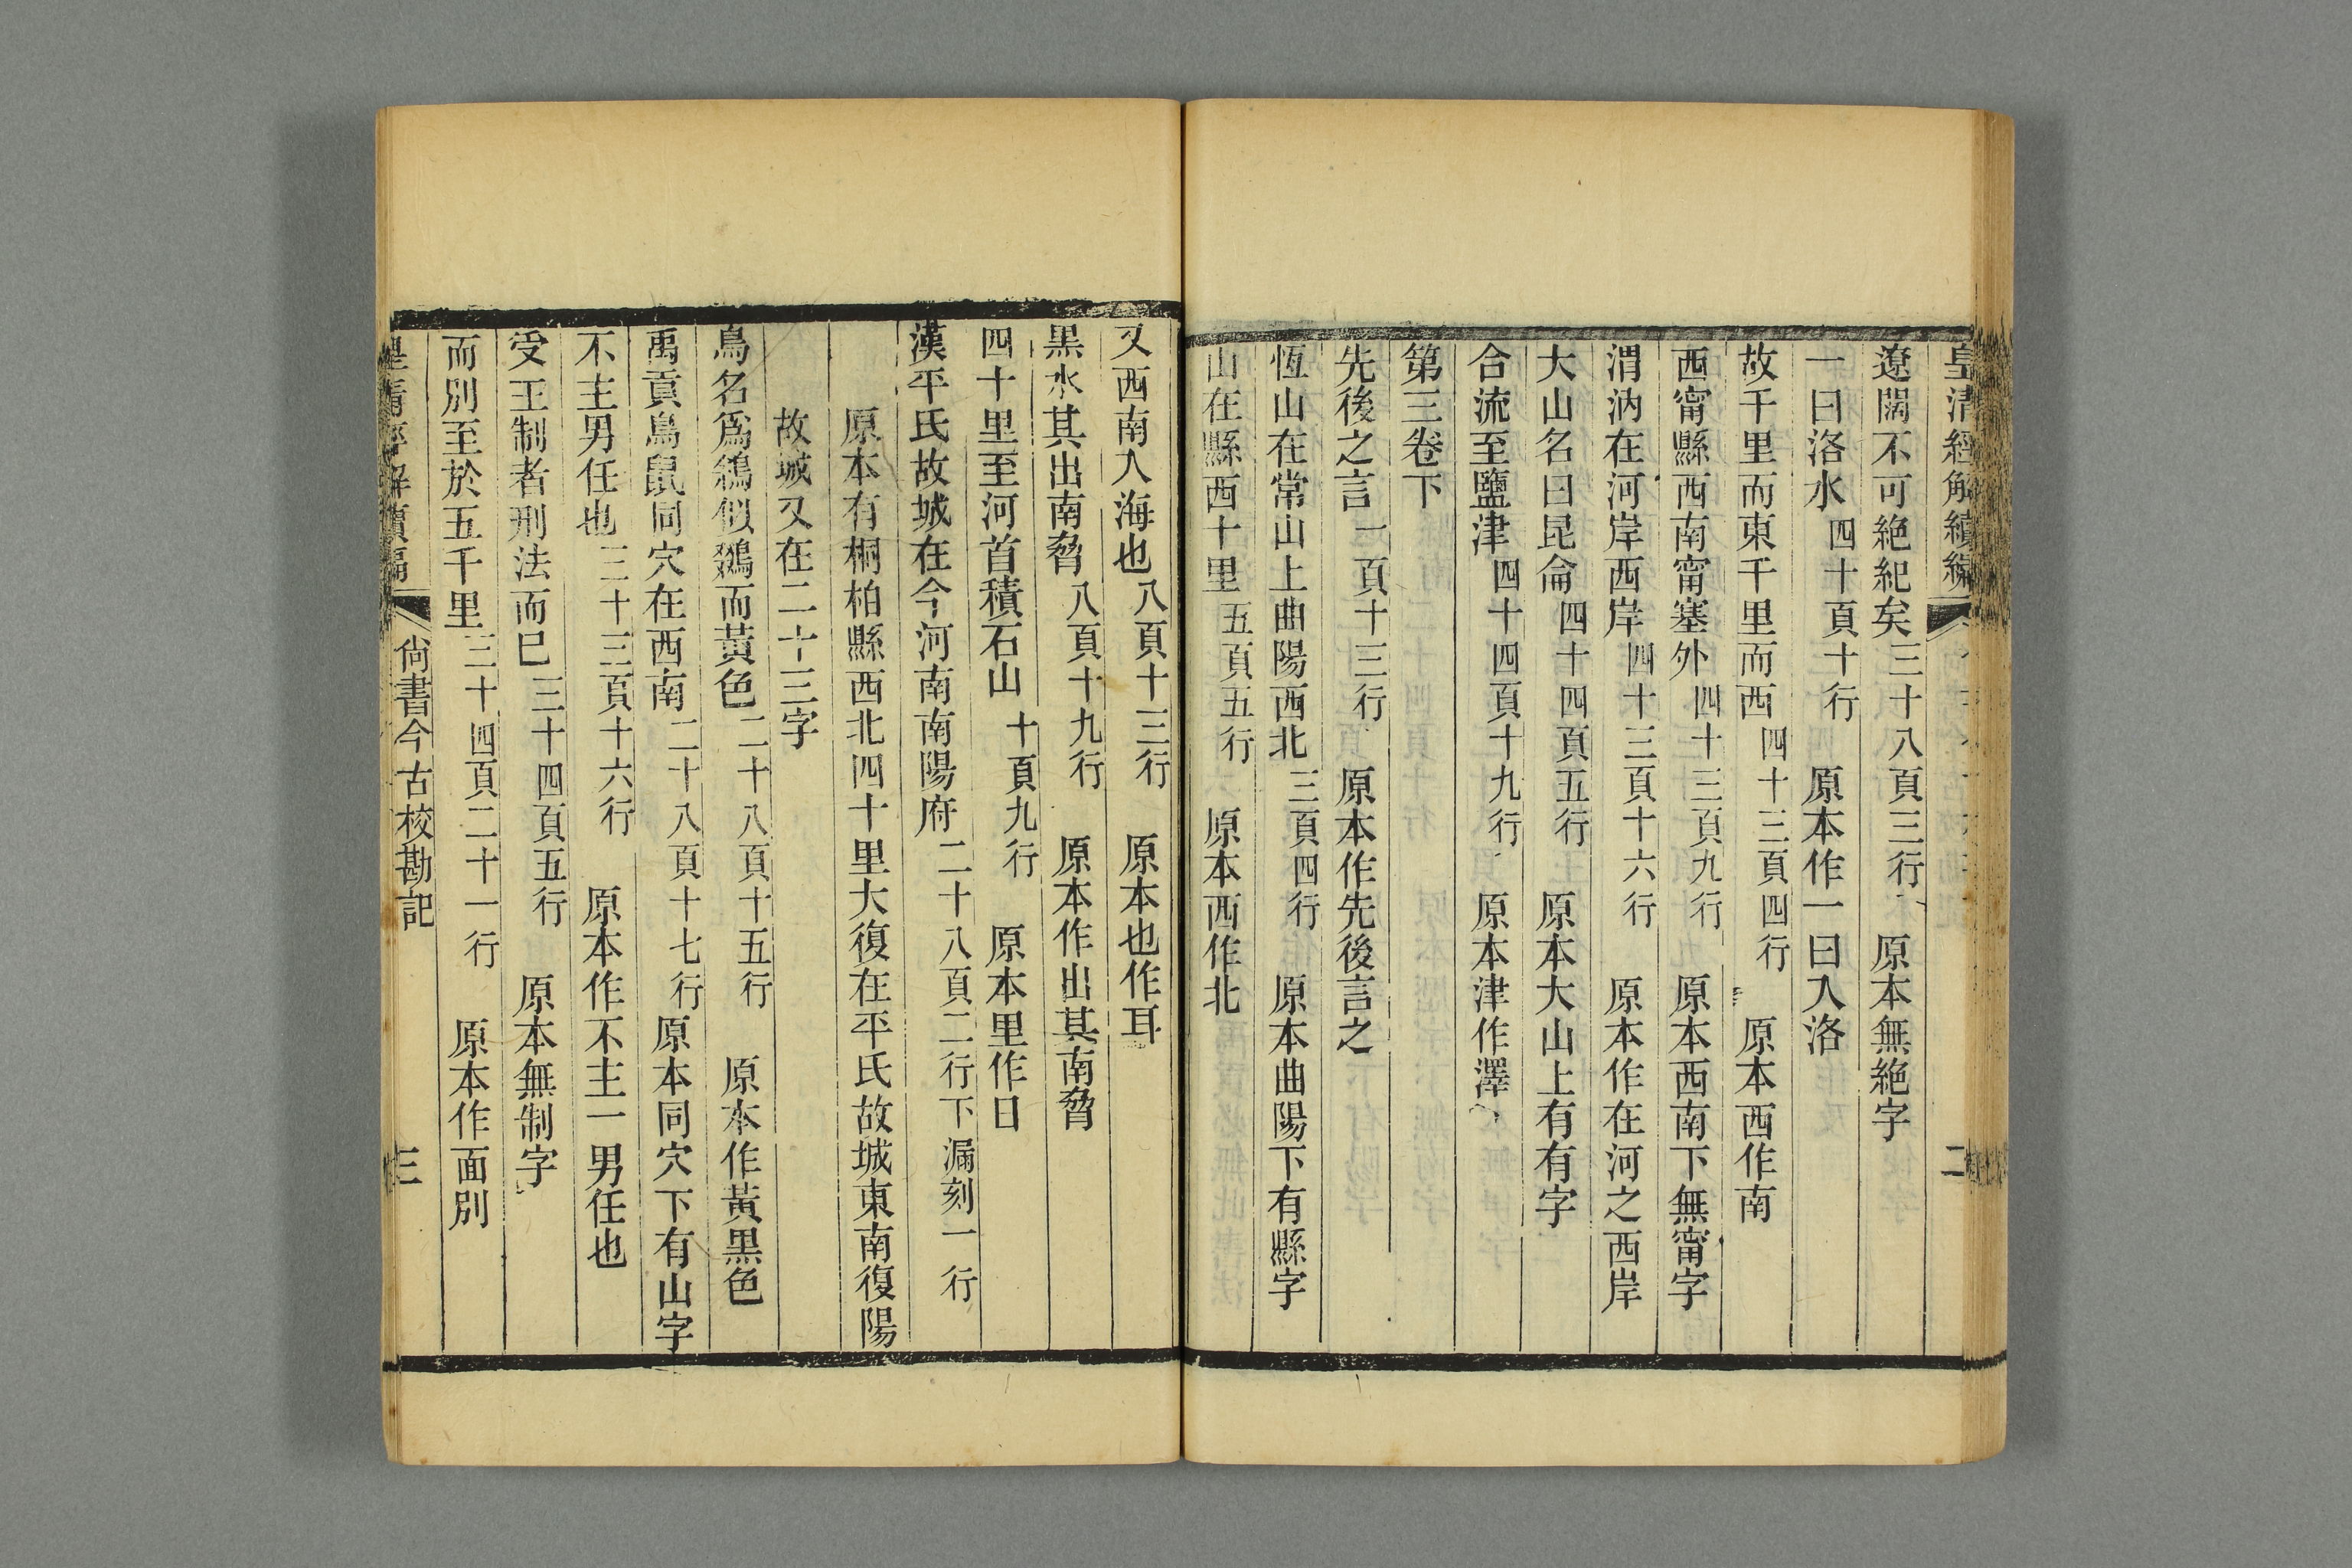 皇清經解續編 二
遼闊不可絶紀矣三十八頁三行 原本無絶字
一曰洛水四十頁十行 原本作一曰入洛
故千里而東千里而西四十三頁四行 原本西作南
西甯縣西南甯塞外四十三頁九行 原本西南下無甯字
渭汭在河岸西岸四十三頁十六行 原本作在河之西岸
大山名曰昆侖四十四頁五行 原本大山上有有字
合流至鹽津四十四頁十九行 原本津作澤
第三卷下
先後之言一頁十三行 原本作先後言之
恆山在常山上曲陽西北三頁四行 原本曲陽下有縣字
山在縣西十里五頁五行 原本西作北
又西南入海也八頁十三行 原本也作耳
黑水其出南脅八頁十九行 原本作出其南脅
四十里至河首積石山十頁九行 原本里作日
漢平氏故城在今河南南陽府二十八頁二行下漏刻一行
原本有桐柏縣西北四十里大復在平氏故城東南復陽
故城又在二十三字
鳥名爲鵌似鵽而黃色二十八頁十五行 原本作黃黑色
禹貢鳥鼠同穴在西南二十八頁十七行 原本同穴下有山字
不主男任也三十三頁十六行 原本作不主一男任也
受王制者刑法而已三十四頁五行 原本無制字
而別至於五千里三十四頁二十一行 原本作面別
皇清經解續編 尙書今古校勘記 三